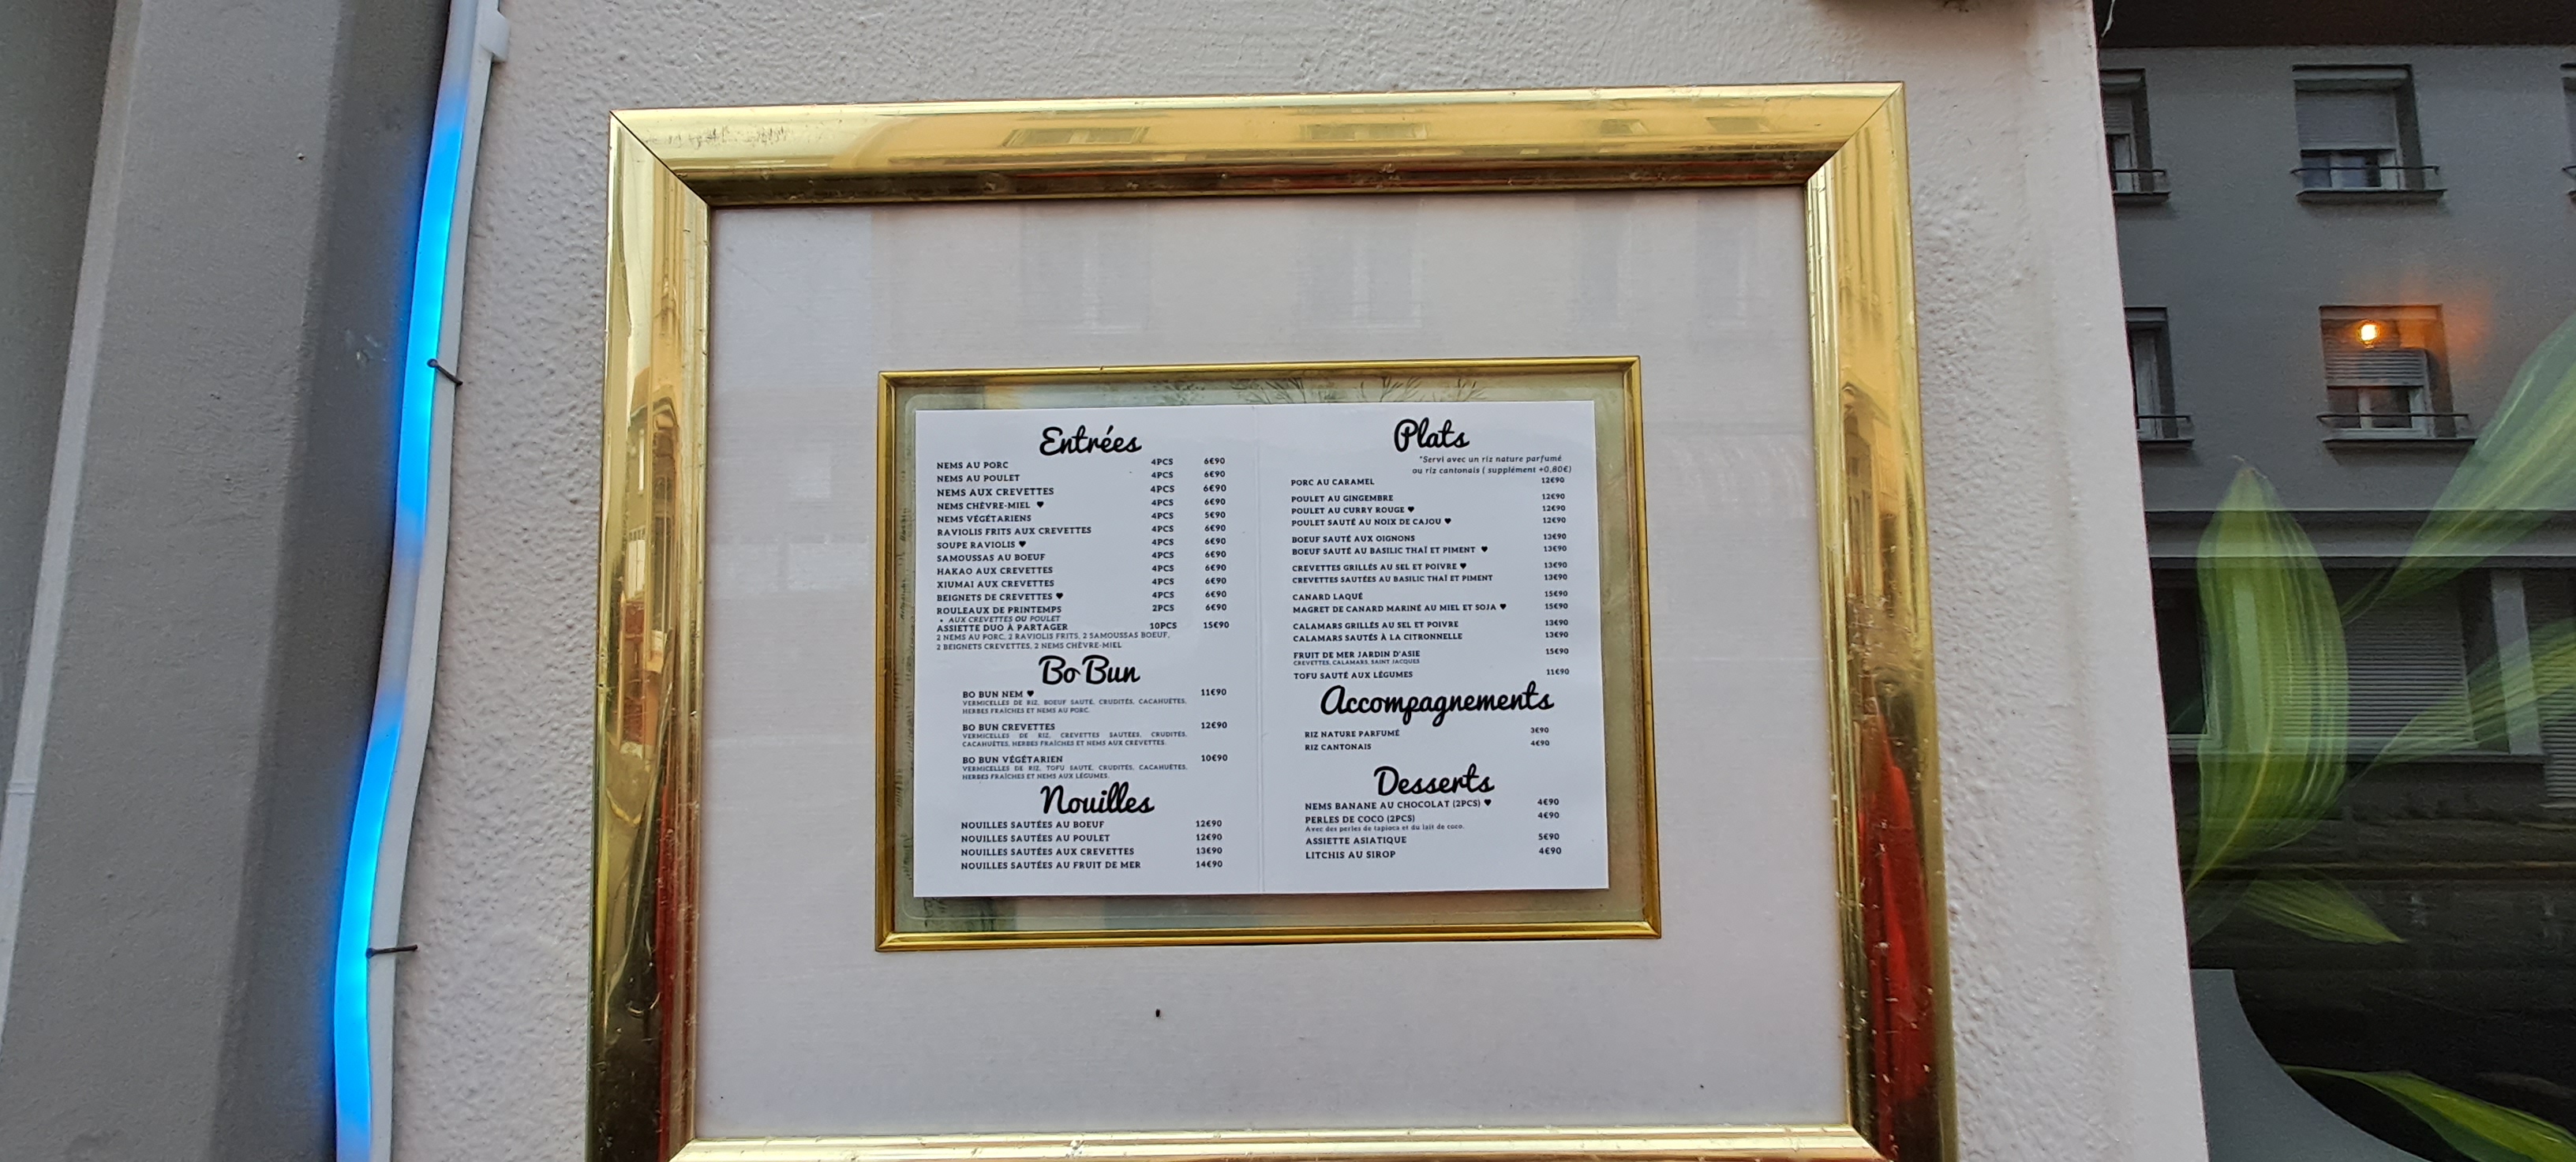 Entrées
NEMS AU PORC 4PCS 6€90
NEMS AU POULET 4PCS 6€90
NEMS AUX CREVETTES 4PCS 6€90
NEMS CHÈVRE-MIEL ♥ 4PCS 6€90
NEMS VÉGÉTARIENS 4PCS 5€90
RAVIOLIS FRITS AUX CREVETTES 4PCS 6€90
SOUPE RAVIOLIS ♥ 4PCS 6€90
SAMOUSSAS AU BOEUF 4PCS 6€90
HAKAO AUX CREVETTES 4PCS 6€90
XIUMAI AUX CREVETTES 4PCS 6€90
BEIGNETS DE CREVETTES ♥ 4PCS 6€90
ROULEAUX DE PRINTEMPS 2PCS 6€90
• AUX CREVETTES OU POULET
ASSIETTE DUO À PARTAGER 10PCS 15€90
2 NEMS AU PORC, 2 RAVIOLIS FRITS, 2 SAMOUSSAS BOEUF,
2 BEIGNETS CREVETTES, 2 NEMS CHÈVRE-MIEL
Bo Bun
BO BUN NEM ♥ 11€90
VERMICELLES DE RIZ, BOEUF SAUTÉ, CRUDITÉS, CACAHUÈTES,
HERBES FRAÎCHES ET NEMS AU PORC.
BO BUN CREVETTES 12€90
VERMICELLES DE RIZ, CREVETTES SAUTÉES, CRUDITÉS,
CACAHUÈTES, HERBES FRAÎCHES ET NEMS AUX CREVETTES.
BO BUN VÉGÉTARIEN 10€90
VERMICELLES DE RIZ, TOFU SAUTÉ, CRUDITÉS, CACAHUÈTES,
HERBES FRAÎCHES ET NEMS AUX LÉGUMES.
Nouilles
NOUILLES SAUTÉES AU BOEUF 12€90
NOUILLES SAUTÉES AU POULET 12€90
NOUILLES SAUTÉES AUX CREVETTES 13€90
NOUILLES SAUTÉES AU FRUIT DE MER 14€90
Plats
*Servi avec un riz nature parfumé
ou riz cantonais ( supplément +0,80€)
PORC AU CARAMEL 12€90
POULET AU GINGEMBRE 12€90
POULET AU CURRY ROUGE ♥ 12€90
POULET SAUTÉ AU NOIX DE CAJOU ♥ 12€90
BOEUF SAUTÉ AUX OIGNONS 13€90
BOEUF SAUTÉ AU BASILIC THAÏ ET PIMENT ♥ 13€90
CREVETTES GRILLÉS AU SEL ET POIVRE ♥ 13€90
CREVETTES SAUTÉES AU BASILIC THAÏ ET PIMENT 13€90
CANARD LAQUÉ 15€90
MAGRET DE CANARD MARINÉ AU MIEL ET SOJA ♥ 15€90
CALAMARS GRILLÉS AU SEL ET POIVRE 13€90
CALAMARS SAUTÉS À LA CITRONNELLE 13€90
FRUIT DE MER JARDIN D'ASIE 15€90
CREVETTES, CALAMARS, SAINT JACQUES
TOFU SAUTÉ AUX LÉGUMES 11€90
Accompagnements
RIZ NATURE PARFUMÉ 3€90
RIZ CANTONAIS 4€90
Desserts
NEMS BANANE AU CHOCOLAT (2PCS) ♥ 4€90
PERLES DE COCO (2PCS) 4€90
Avec des perles de tapioca et du lait de coco.
ASSIETTE ASIATIQUE 5€90
LITCHIS AU SIROP 4€90